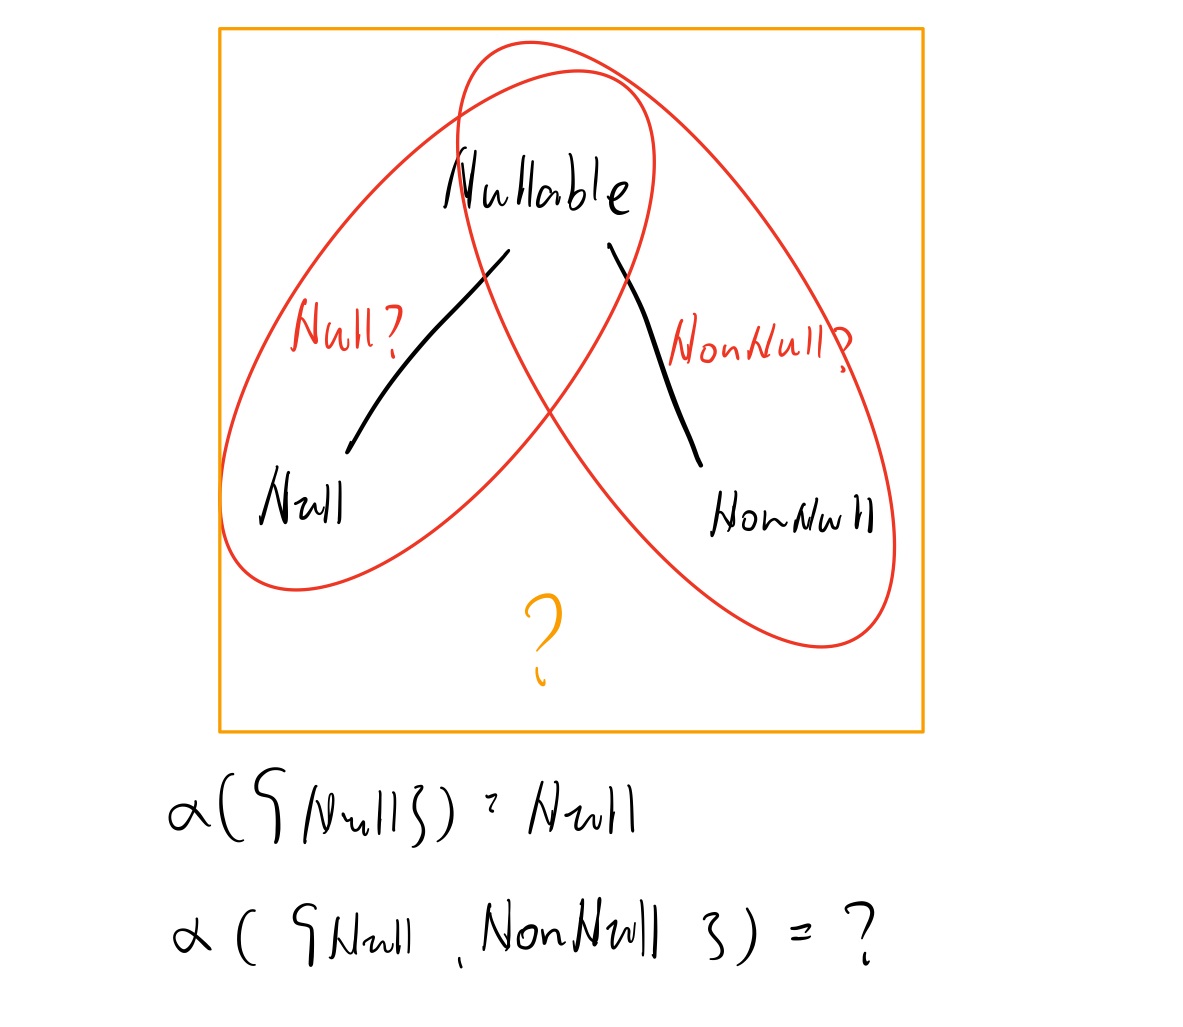 Nullable
Null?
NonNull?
Null
NonNull
?
α({Null}) = Null
α({Null, NonNull}) = ?